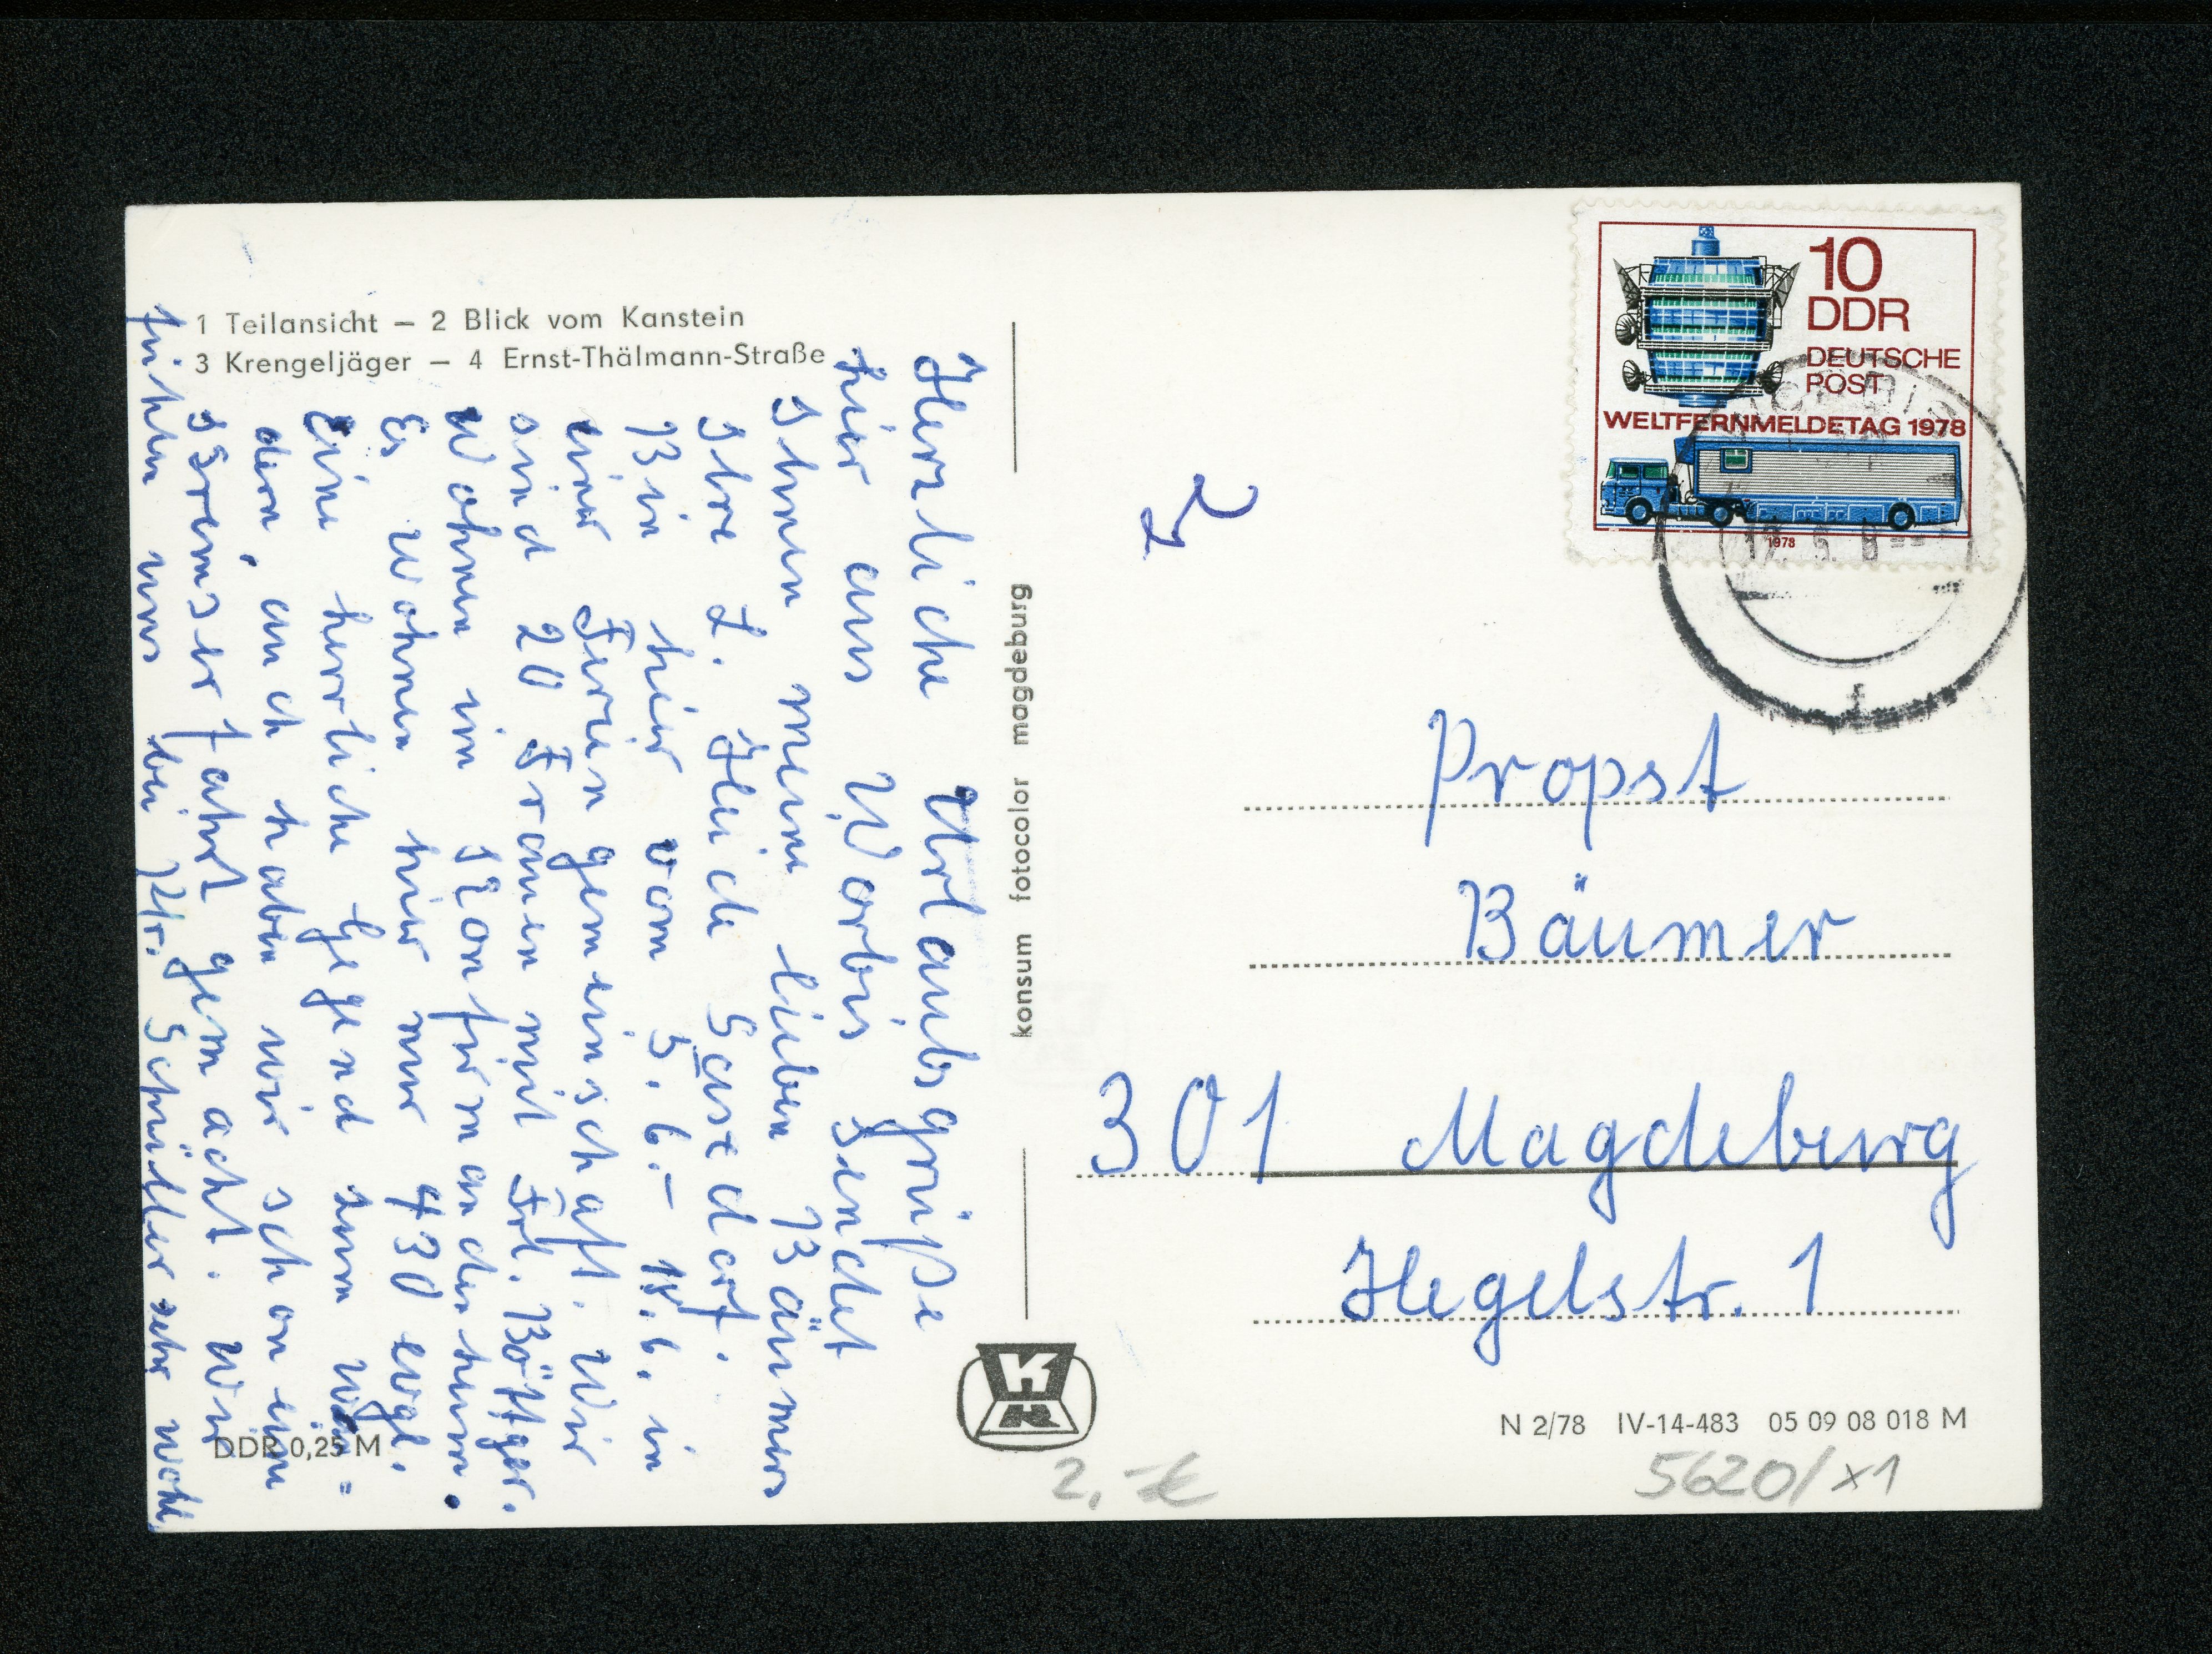 1 Teilansicht – 2 Blick vom Kanstein
3 Krengeljäger – 4 Ernst-Thälmann-Straße
Herzliche Urlaubsgrüße
hier aus Worbis sendet
Ihnen meine lieben Bäumers
Ihre L. Heide Sasedorf.
Bin hier vom 5.6.– 18.6. in
einer Feriengemeinschaft. Wir
sind 20 Frauen mit Frl. Böttger.
Wohnen im Konfirmandenheim.
Es wohnen hier nur 430 evgl.
Eine herrliche Gegend zum wan=
dern, auch haben wir schon eine
Kremserfahrt gemacht. Wir
fühlen uns bei Pfr. Schüller sehr wohl.
DDR 0,25 M
konsum fotocolor magdeburg
KR
10
DDR
DEUTSCHE
POST
WELTFERNMELDETAG 1978
1978
f
Propst
Bäumer
301 Magdeburg
Hegelstr. 1
N 2/78 IV-14-483 05 09 08 018 M
2,-€
5620/x1